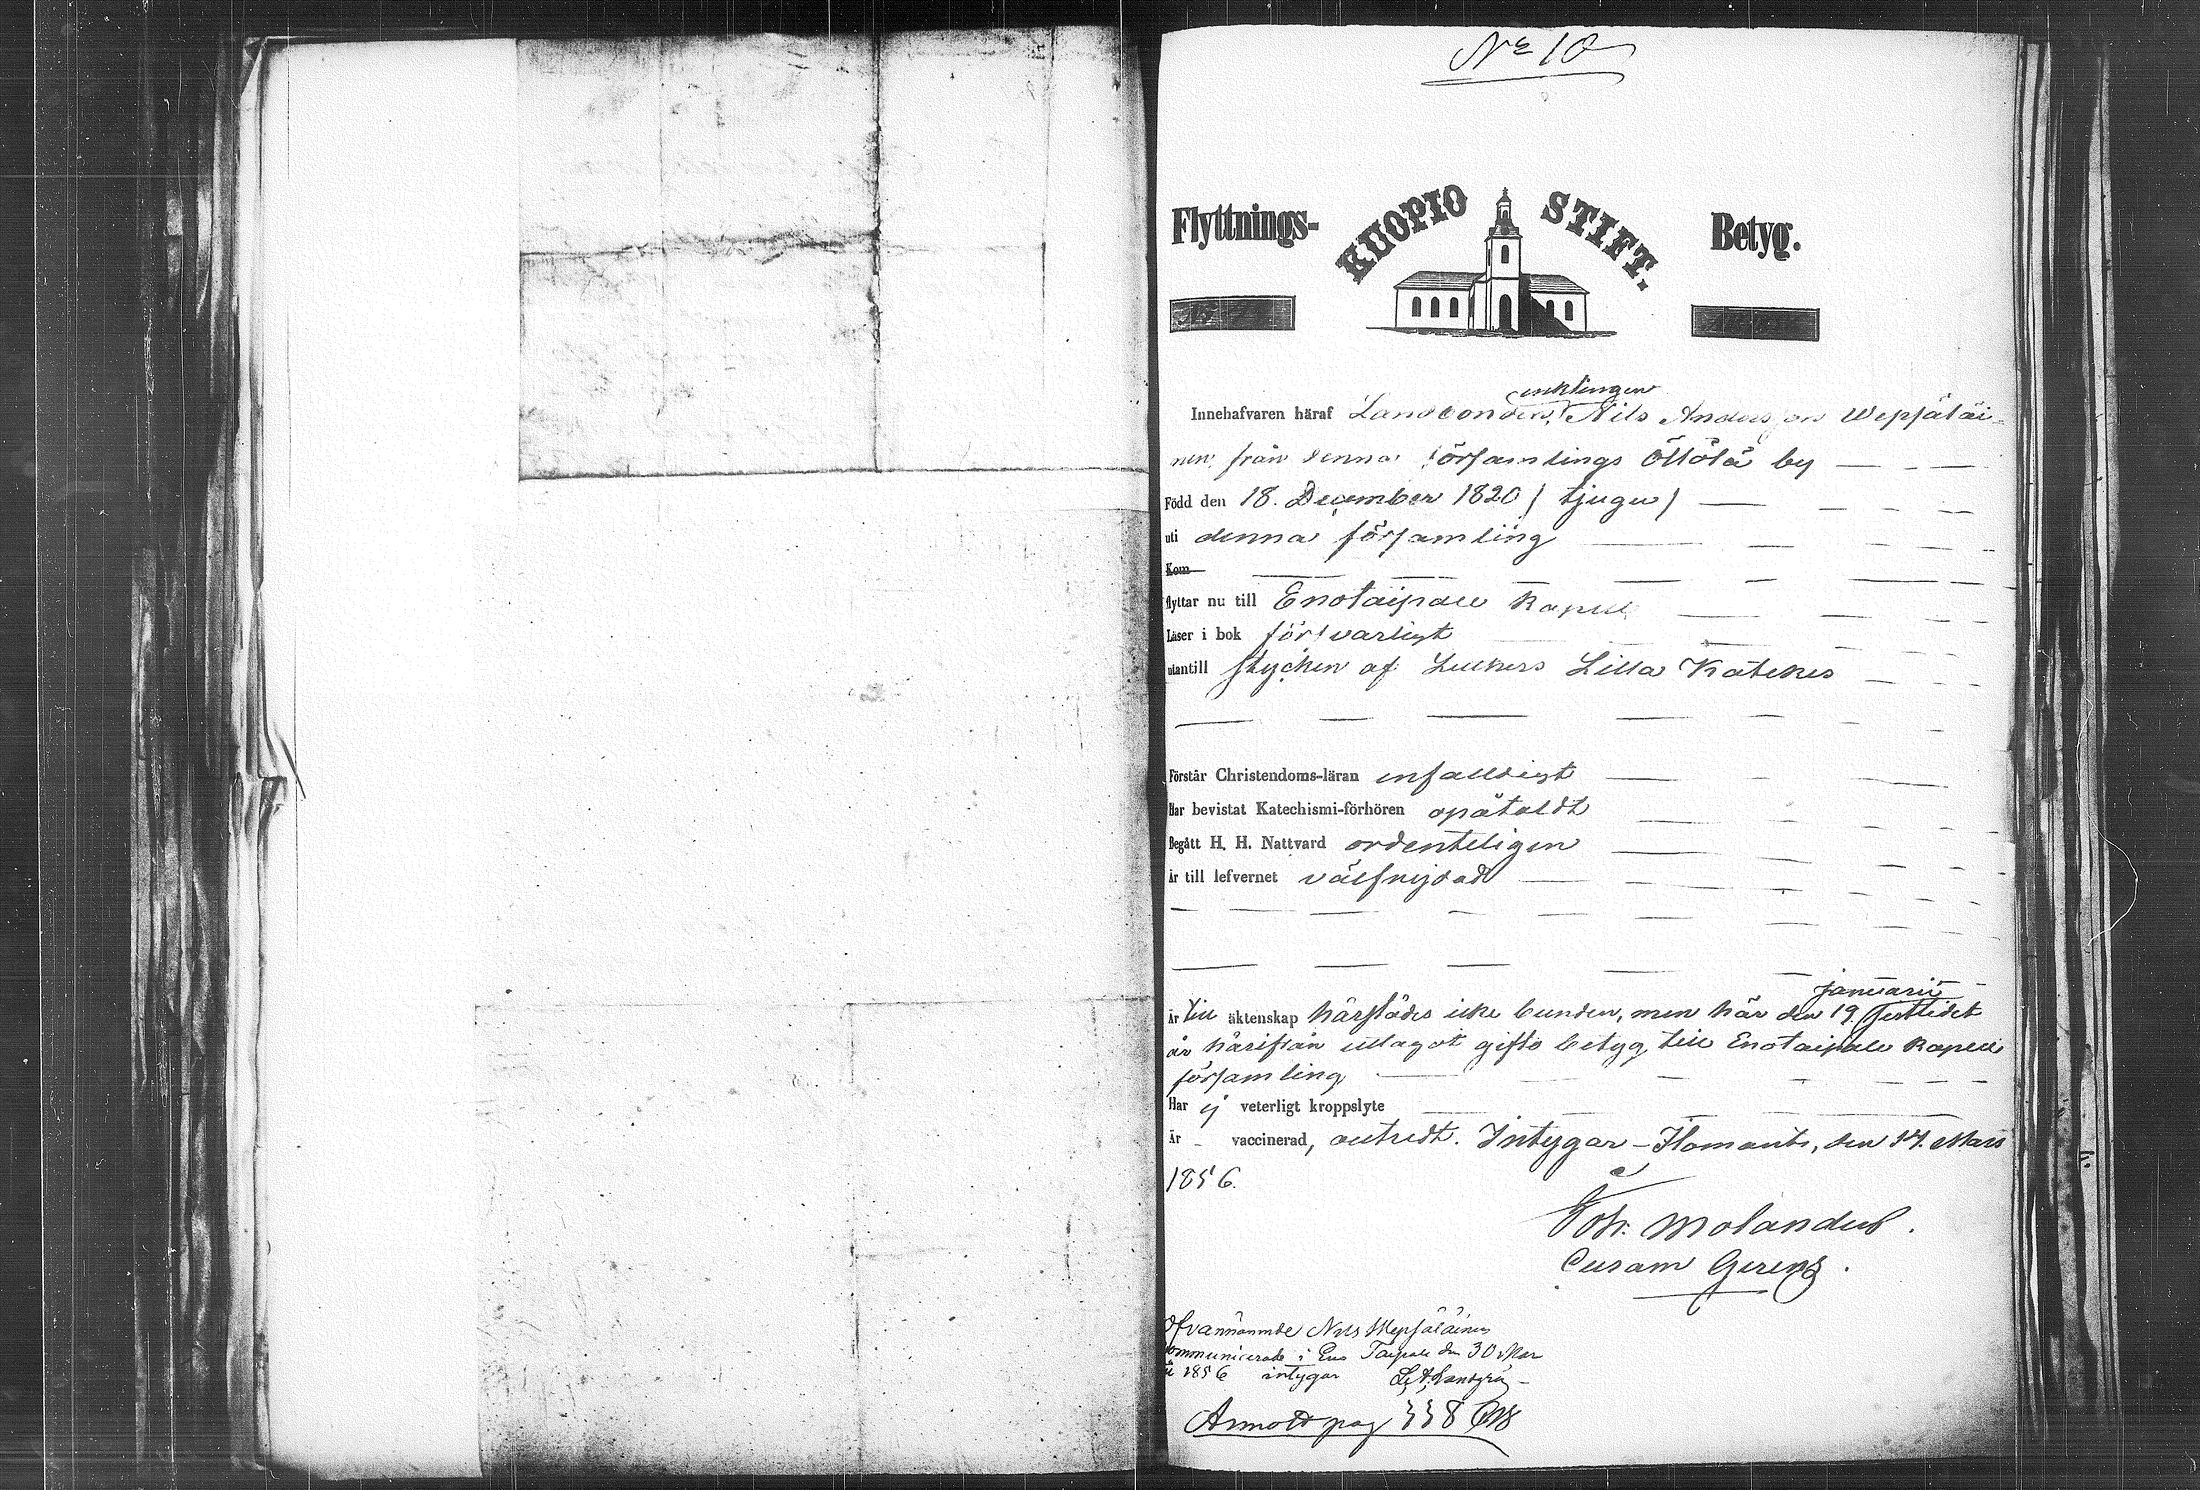 No 10
Flyttnings- KUOPIO STIFT. Betyg.
enklingen
Innehafvaren häraf Landbonden, Nils Andersson Wepsäläi-
nen, från denna församlings Öllölä by
Född den 18. December 1820 / tjugu /
uti denna församling
Kom
flyttar nu till Enotaipale Kapell
Läser i bok försvarligt
utantill stycken af Luthers Lilla Katekes
Förstår Christendoms-läran enfaldigt
Har bevistat Katechismi-förhören opåtaldt
Begått H. H. Nattvard ordenteligen
Är till lefvernet välfrejdad
januarii
Är till äktenskap härstädes icke bunden, men här den 19
år härifrån uttagit gifto betyg till Enotaipale Kapell
församling
Har ej veterligt kroppslyte
Är vaccinerad, outredt. Intygar – Ilomants, den 14. Mars
1856.
Joh. Molander.
Curam Gerens.
Ofvannämnde Nils Wepsäläinen
kommunicerade i Eno Taipale den 30 Mar
1856 intygar
Annott pag 338